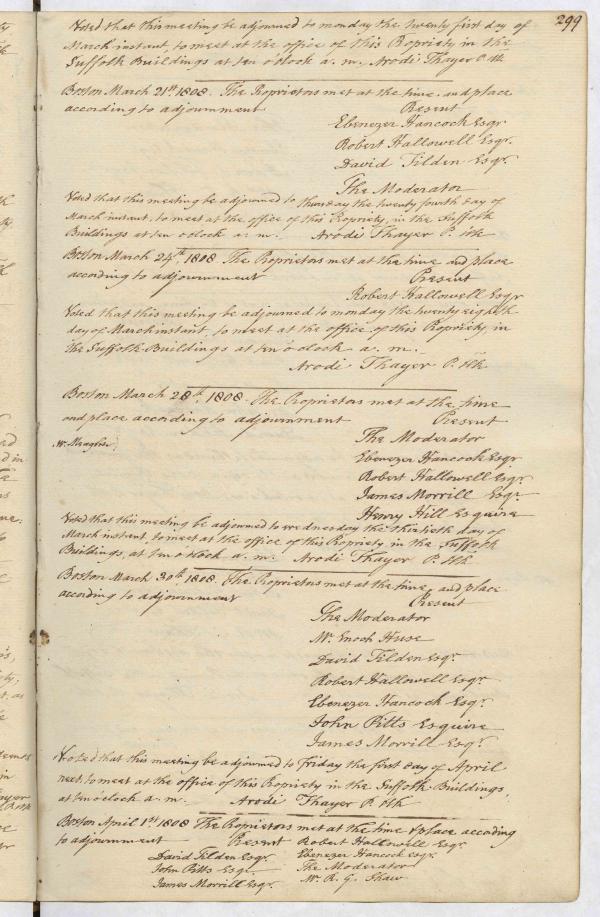 299
Voted that this meeting be adjourned to monday the twenty first day of
March instant, to meet at the office of this Propriety in the
Suffolk Buildings at ten o'clock a. m. Arodi Thayer P. Clk
Boston March 21st 1808. The Proprietors met at the time and place
according to adjournment Present
Ebenezer Hancock Esqr
Robert Hallowell Esqr.
David Tilden Esqr.
The Moderator
Voted that this meeting be adjourned to thursday the twenty fourth day of
March instant, to meet at the office of this Propriety, in the Suffolk
Buildings at ten o'clock a. m. Arodi Thayer P. Clk
Boston March 24th 1808 The Proprietors met at the time and place
according to adjournment Present
Robert Hallowell Esqr
Voted that this meeting be adjourned to monday the twenty eighth
day of March instant, to meet at the office of this Propriety in
the Suffolk-Buildings at ten o'clock a. m.
Arodi Thayer P. Clk
Boston March 28th, 1808. The Proprietors met at the time
and place according to adjournment Present
The Moderator
Mr.
Ebenezer Hancock Esqr
Robert Hallowell Esqr
James Morrill Esqr.
Henry Hill Esquire
Voted that this meeting be adjourned to wednesday the thirtieth day of
March instant, to meet at the office of this Propriety in the Suffolk
Buildings, at ten o'clock a. m. Arodi Thayer P. Clk
Boston March 30th 1808. The Proprietors met at the time and place
according to adjournment Present
The Moderator
Mr. Enoch Huse
David Tilden Esqr.
Robert Hallowell Esqr.
Ebenezer Hancock Esqr.
John Pitts Esquire
James Morrill Esqr.
Voted that this meeting be adjourned to Friday the first day of April
next, to meet at the office of this Propriety in the Suffolk Buildings,
at ten o'clock a. m. Arodi Thayer P. Clk
Boston April 1st 1808 The Proprietors met at the time & place according
to adjournment Present Robert Hallowell Esqr
David Tilden Esqr. Ebenezer Hancock Esqr.
John Pitts Esqr. The Moderator
James Morrill Esqr. Mr. R. G. Shaw